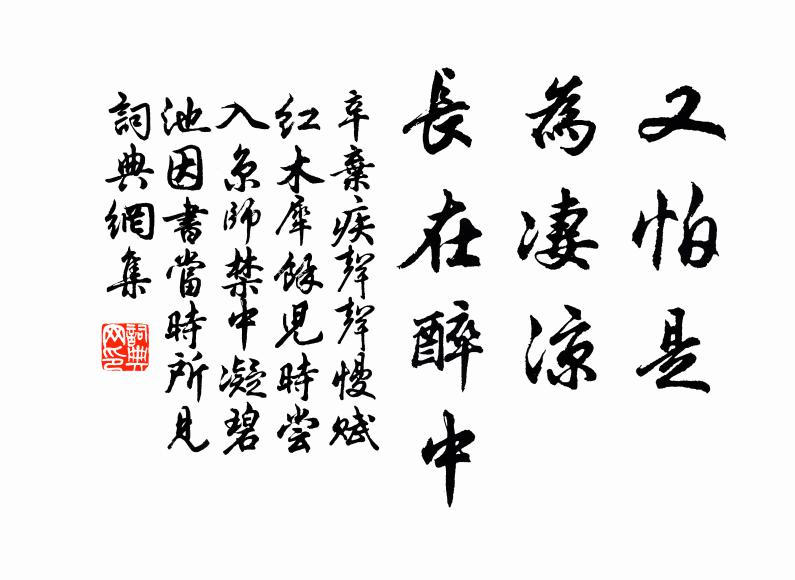 又怕是
為凄涼
長在醉中
辛棄疾聲聲慢賦
紅木犀餘兒時嘗
入京師禁中凝碧
池因書當時所見
詞典網集
詞典网印